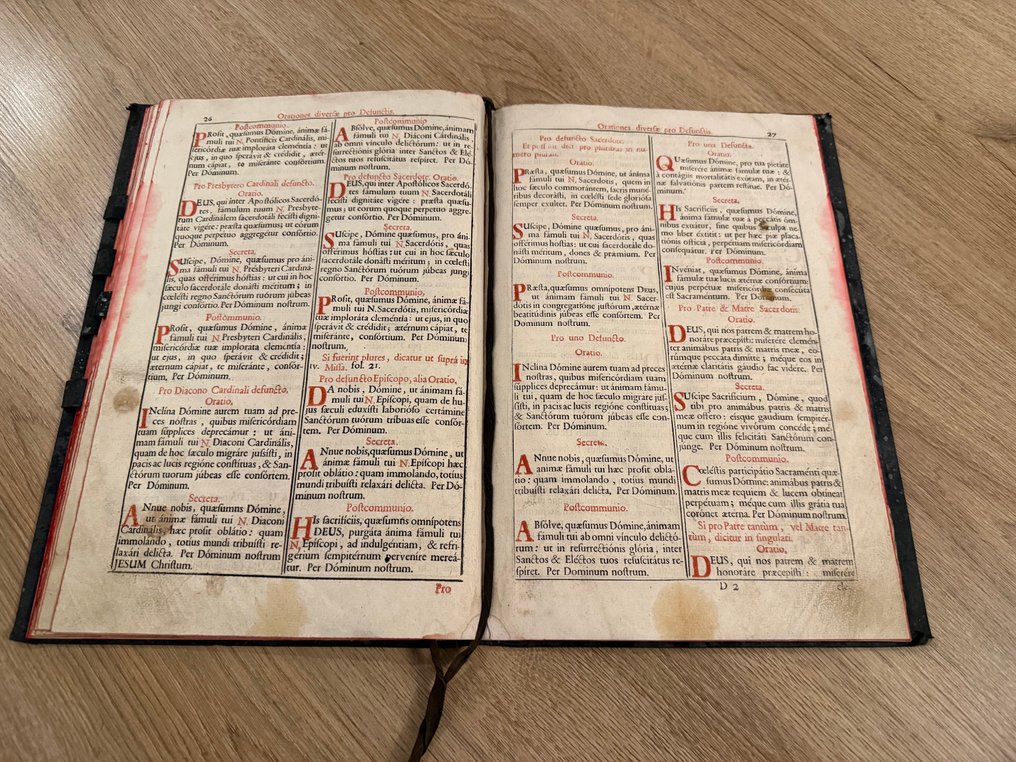 26
Orationes diversæ pro Defunctis.
Postcommunio.
PRosit, quæsumus Dómine, ánimæ fá-
muli tui N. Pontificis Cardinális, mi-
sericórdiæ tuæ implorata cleméntia: ut
ejus, in quo sperávit & crédidit, ætér-
num cápiat, te miserante consortium
Per Dóminum.
Pro Presbytero Cardinali defuncto.
Oratio.
DEUS, qui inter Apostólicos Sacerdó-
tes, famulum tuum N. Presbyte-
rum Cardinálem sacerdotáli fecisti digni-
táte vigére: præsta quæsumus; ut eórum
quoque perpétuo aggregétur consórtio.
Per Dóminum.
Secreta.
SUscipe, Dómine quæsumus, pro áni-
ma fámuli tui N. Présbyteri Cardiná-
lis, quas offérimus hóstias: ut cui in hoc
sæculo sacerdotále donásti méritum; in
cœlésti regno Sanctórum tuórum júbeas
jungi consórtio. Per Dóminum nostrum.
Postcommunio.
PRosit, quæsumus Dómine, ánimæ
fámuli tui N. Présbyteri Cardinális,
misericórdiæ tuæ implorata cleméntia:
ut ejus, in quo sperávit & crédidit;
ætérnum cápiat, te miserante, consór-
tium, Per Dóminum.
Pro Diacono Cardinali defuncto,
Oratio,
INclina Dómine aurem tuam ad pre-
ces nostras, quibus misericórdiam
tuam supplices deprecámur: ut áni-
mam fámuli tui N. Diaconi Cardinális,
quam de hoc sæculo migráre jussisti, in
pacis ac lucis regióne constítuas, & San-
ctórum tuórum júbeas esse consórtem.
Per Dóminum.
Secreta.
ANnue nobis, quæsumus Dómine,
ut ánimæ fámuli tui N. Diaconi
Cardinális, hæc prosit oblátio: quam
immolando, totius mundi tribuisti re-
laxári delícta. Per Dóminum nostrum
JESUM Christum.
Postcommunio
ABsólve, quæsumus Dómine, ánimam
fámuli tui N. Diáconi Cardinális,
ab omni vínculo delictórum: ut in re-
surrectiónis glória inter Sanctos & Elé-
ctos tuos resuscitátus respíret. Per Dó-
minum nostrum.
Pro defuncto Sacerdote. Oratio.
DEUS, qui inter Apostólicos Sacerdó-
tes famulum tuum N. Sacerdotáli
fecisti dignitáte vigére: præsta quæsu-
mus; ut eorum quoque perpetuo aggre-
getur consortio. Per Dóminum.
Secreta.
SUscipe, Dómine quæsumus, pro áni-
ma fámuli tui N. Sacerdótis, quas
offérimus hóstias: ut cui in hoc sæculum
sacerdotále donásti méritum; in cœlésti
regno Sanctórum tuórum júbeas jungi
consórtio. Per Dóminum.
Postcommunio.
PRosit, quæsumus Dómine, ánimæ fá-
muli tui N. Sacerdótis, misericórdiæ
tuæ implorata cleméntia: ut ejus, in quo
sperávit & crédidit; ætérnum cápiat, te
miserante, consórtium. Per Dóminum,
nostrum.
Si fuerint plures, dicatur ut suprà in
iv. Missa. fol. 21.
Pro defuncto Episcopo, alia Oratio,
DA nobis, Dómine, ut ánimam fá-
muli tui N. Epíscopi, quam de hu-
jus sæculi eduxísti laborióso certámine
Sanctórum tuórum tríbuas esse consór-
tem. Per Dóminum.
Secreta.
ANnue nobis, quæsumus Dómine, ut
ánimæ fámuli tui N. Epíscopi hæc
prosit oblátio: quam immolando, totius
mundi tribuísti relaxári delícta. Per Dó-
minum nostrum.
Postcommunio.
HIs sacrificiis, quæsumus omnípotens
DEUS, purgáta ánima fámuli tui
N. Epíscopi, ad indulgéntiam, & refri-
gérium sempitérnum pervenire mereá-
tur. Per Dóminum nostrum.
Pro
Orationes diversæ pro Defunctis.
27
Pro defuncto Sacerdote.
Et potest dici pro pluribus in nu-
mero plurali.
Oratio.
PRæsta, quæsumus Dómine, ut ánima
fámuli tui N. Sacerdótis, quem in
hoc sæculo commorántem, sacris muné-
ribus decorásti, in cœlésti sede gloriósa
semper exúltet. Per Dóminum nostrum.
Secreta.
SUscipe, Dómine, quæsumus, pro áni-
ma fámuli tui N. Sacerdótis, quas
offérimus hóstias: ut cui sacerdotále do-
násti méritum, dones & præmium. Per
Dóminum nostrum.
Postcommunio.
PRæsta, quæsumus omnípotens DEUS,
ut ánimam fámuli tui N. Sacer-
dótis in congregatióne justórum, ætérnæ
beatitúdinis júbeas esse consórtem. Per
Dominum nostrum.
Pro uno Defuncto.
Oratio.
INclina Dómine aurem tuam ad preces
nostras, quibus misericórdiam tuam
súpplices deprecámur: ut ánimam fámu-
li tui, quam de hoc sæculo migráre jus-
sisti, in pacis ac lucis regióne constítuas;
& Sanctórum tuórum júbeas esse con-
sórtem. Per Dóminum nostrum.
Secreta.
ANnue nobis, quæsumus Dómine, ut
ánimæ fámuli tui hæc prosit oblá-
tio: quam immolando, totius mundi
tribuisti relaxári delícta. Per Dóminum.
Postcommunio.
ABsólve, quæsumus Dómine, ánimam
fámuli tui ab omni vínculo delictó-
rum: ut in resurrectiónis glória, inter
Sanctos & Eléctos tuos resuscitátus re-
spíret. Per Dominum nostrum.
Pro una Defuncta.
Oratio.
QUæsumus Dómine, pro tua pietáte
miserére ánimæ fámulæ tuæ: &
à contágiis mortalitátis exútam, in ætér-
næ salvatiónis partem restítue. Per Dó-
minum.
Secreta.
HIs Sacrifíciis, quæsumus Dómine,
ánima fámulæ tuæ à peccátis óm-
nibus exuátur, sine quibus à culpa ne-
mo liber éxtitit: ut per hæc piæ placa-
tiónis officia, perpétuam misericórdiam
consequátur. Per Dóminum.
Postcommunio.
INvéniat, quæsumus Dómine, ánima
fámulæ tuæ lucis ætérnæ consórtium:
cujus perpétuæ misericórdiæ consecúta
est Sacraméntum. Per Dóminum.
Pro Patre & Matre Sacerdotis.
Oratio.
DEUS, qui nos patrem & matrem ho-
noráre præcepísti: miserére clemén-
ter animábus patris & matris meæ, eo-
rúmque peccáta dimítte; méque eos in
ætérnæ claritátis gáudio fac vidére. Per
Dóminum nostrum.
Secreta.
SUscipe Sacrifícium, Dómine, quod
tibi pro animábus patris & matris
meæ óffero: eisque gáudium sempitér-
num in regióne vivórum concéde; mé-
que cum illis felicitáti Sanctórum con-
junge. Per Dóminum nostrum.
Postcommunio.
CŒléstis participátio Sacraménti quæ-
sumus Dómine: animábus patris &
matris meæ requiem & lucem obtíneat
perpétuam; méque cum illis grátia tua
corónet ætérna. Per Dóminum nostrum
Si pro Patre tantùm, vel Matre tan-
tùm, dicitur in singulari.
Oratio,
DEUS, qui nos patrem & matrem
honoráre præcepísti: miserére
D 2